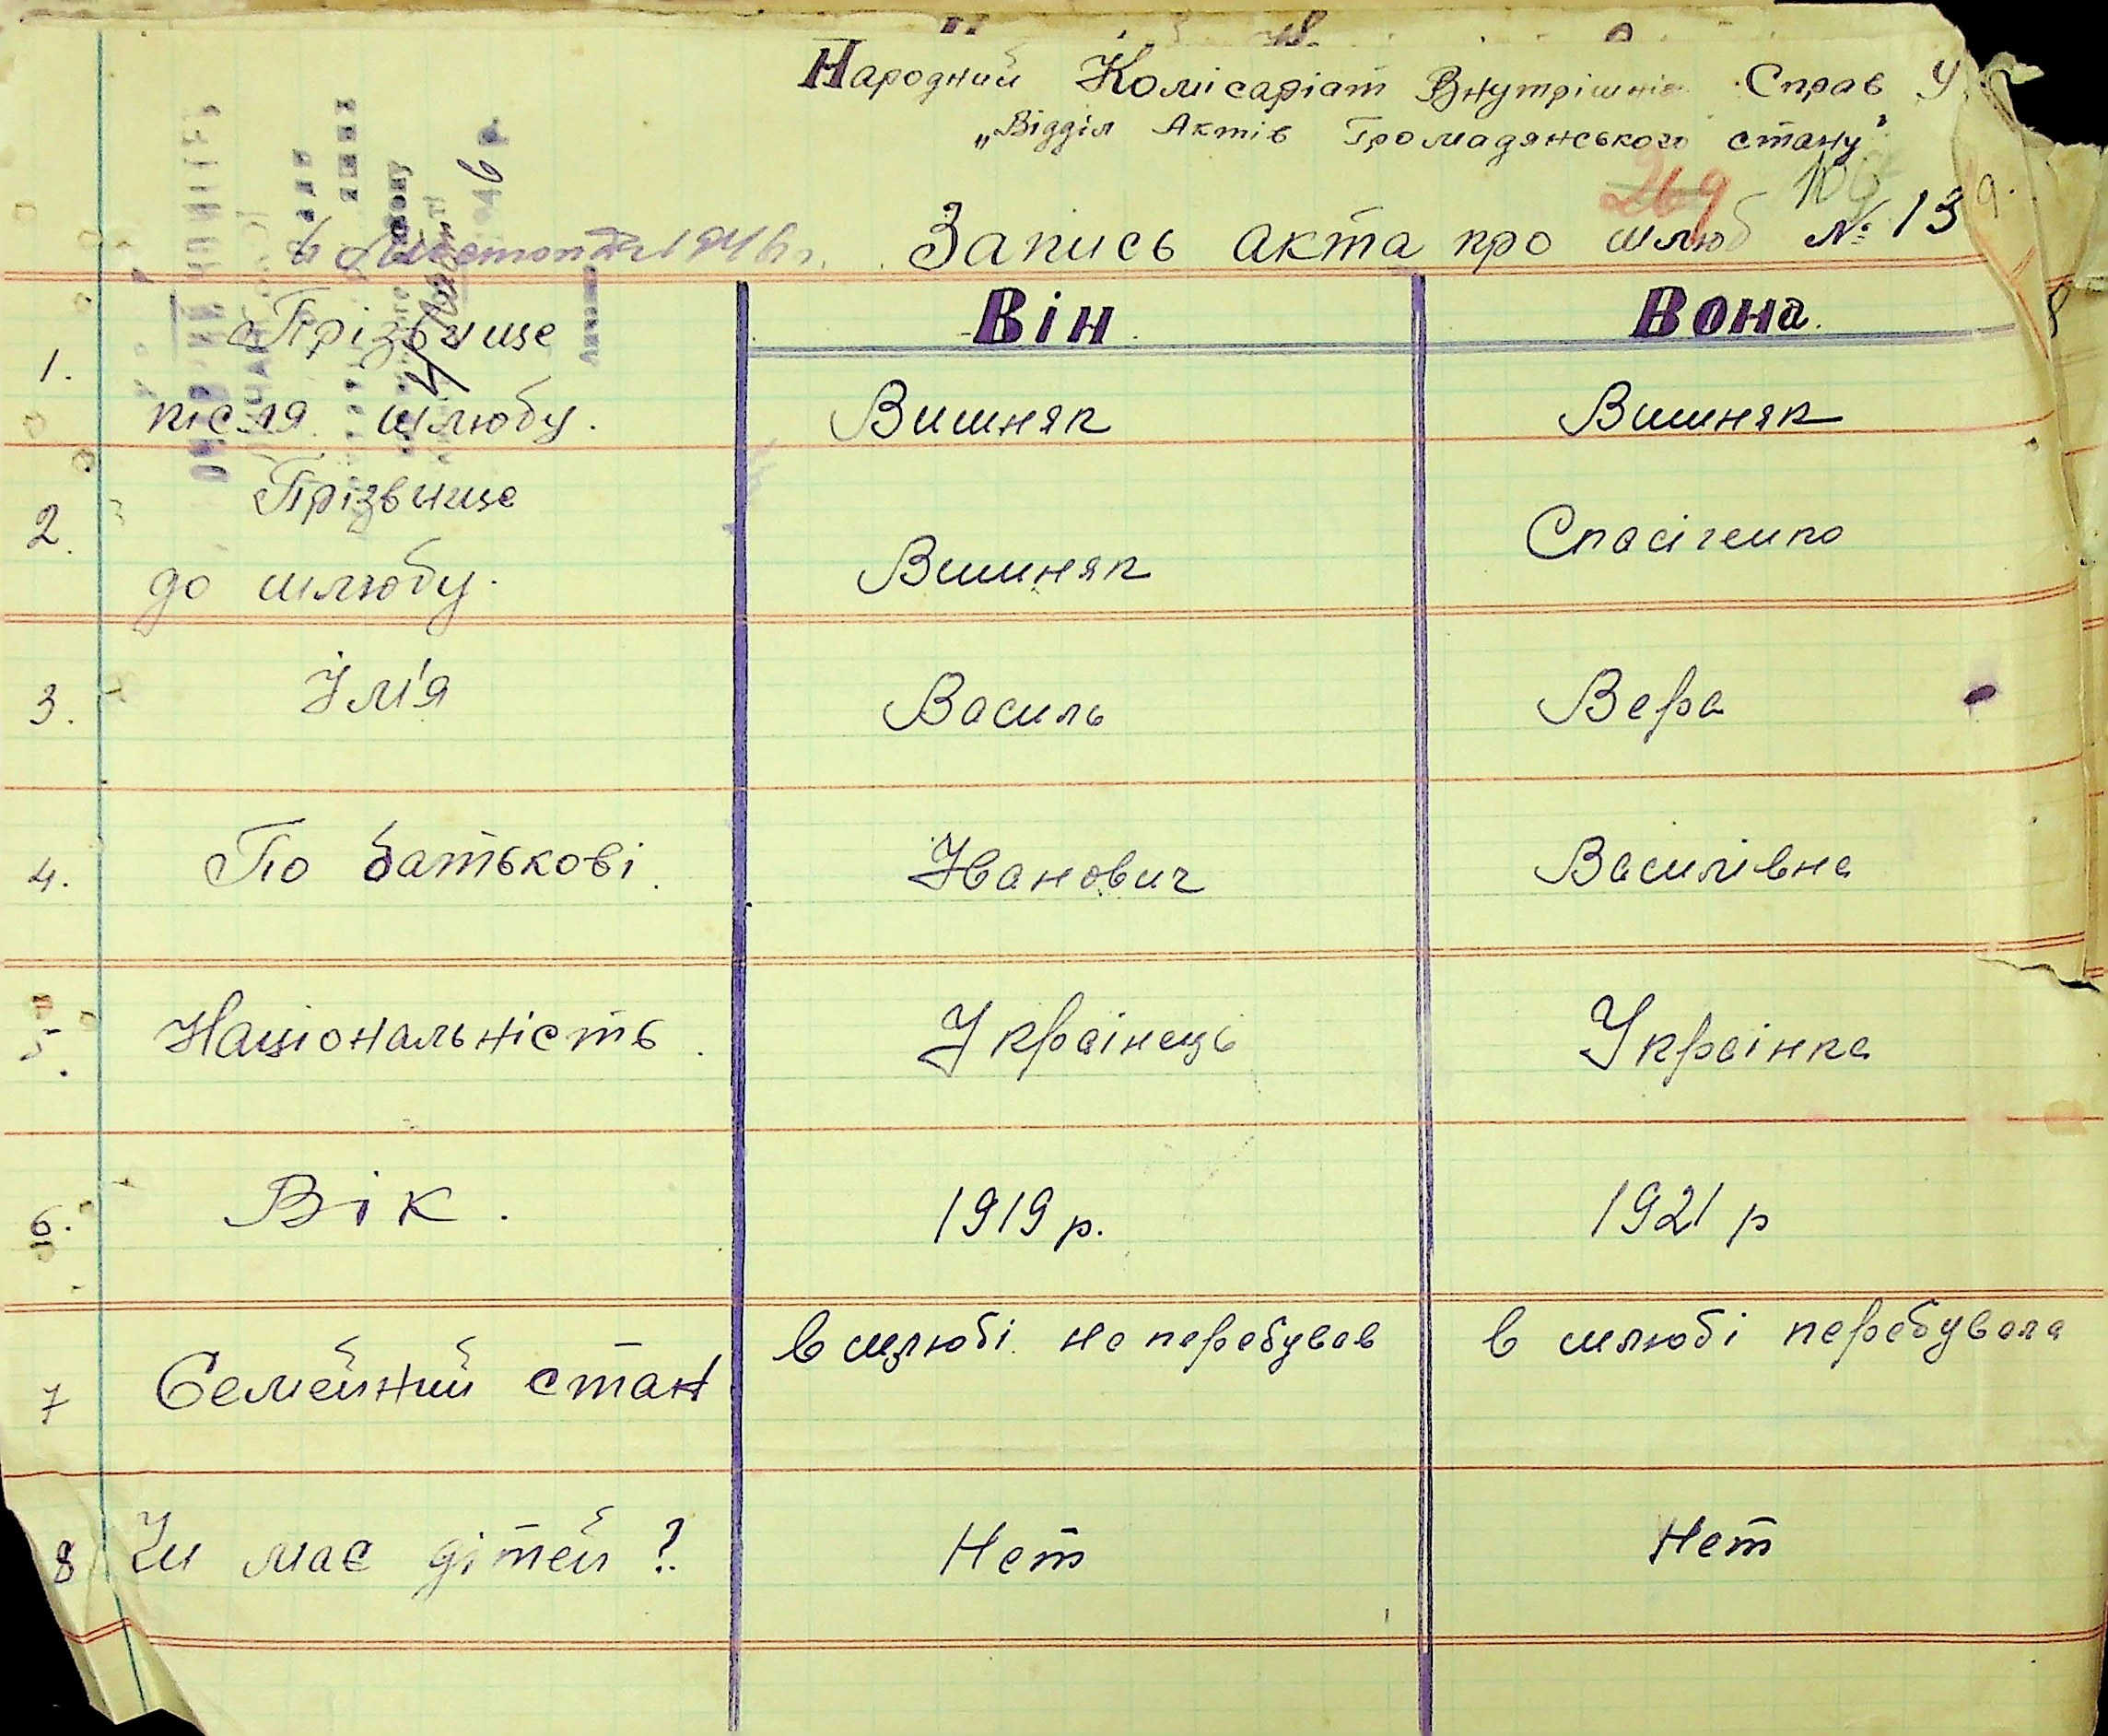 Народний Комісаріат Внутрішніх Справ У
„Відділ Актів Громадянського стану"
269
6 Листопада 1946 р. Запись акта про шлюб № 13
Він Вона.
1. Прізвище
після шлюбу. Вишняк Вишняк
2. Прізвище
до шлюбу. Вишняк
3. Імі'я Василь Вера
4. По батькові. Іванович Василівна
5. Національність. Українець Українка
6. Вік. 1919 р. 1921 р
7 Семейний стан в шлюбі не перебував в шлюбі перебувала
8 Чи має дітей? Нет Нет